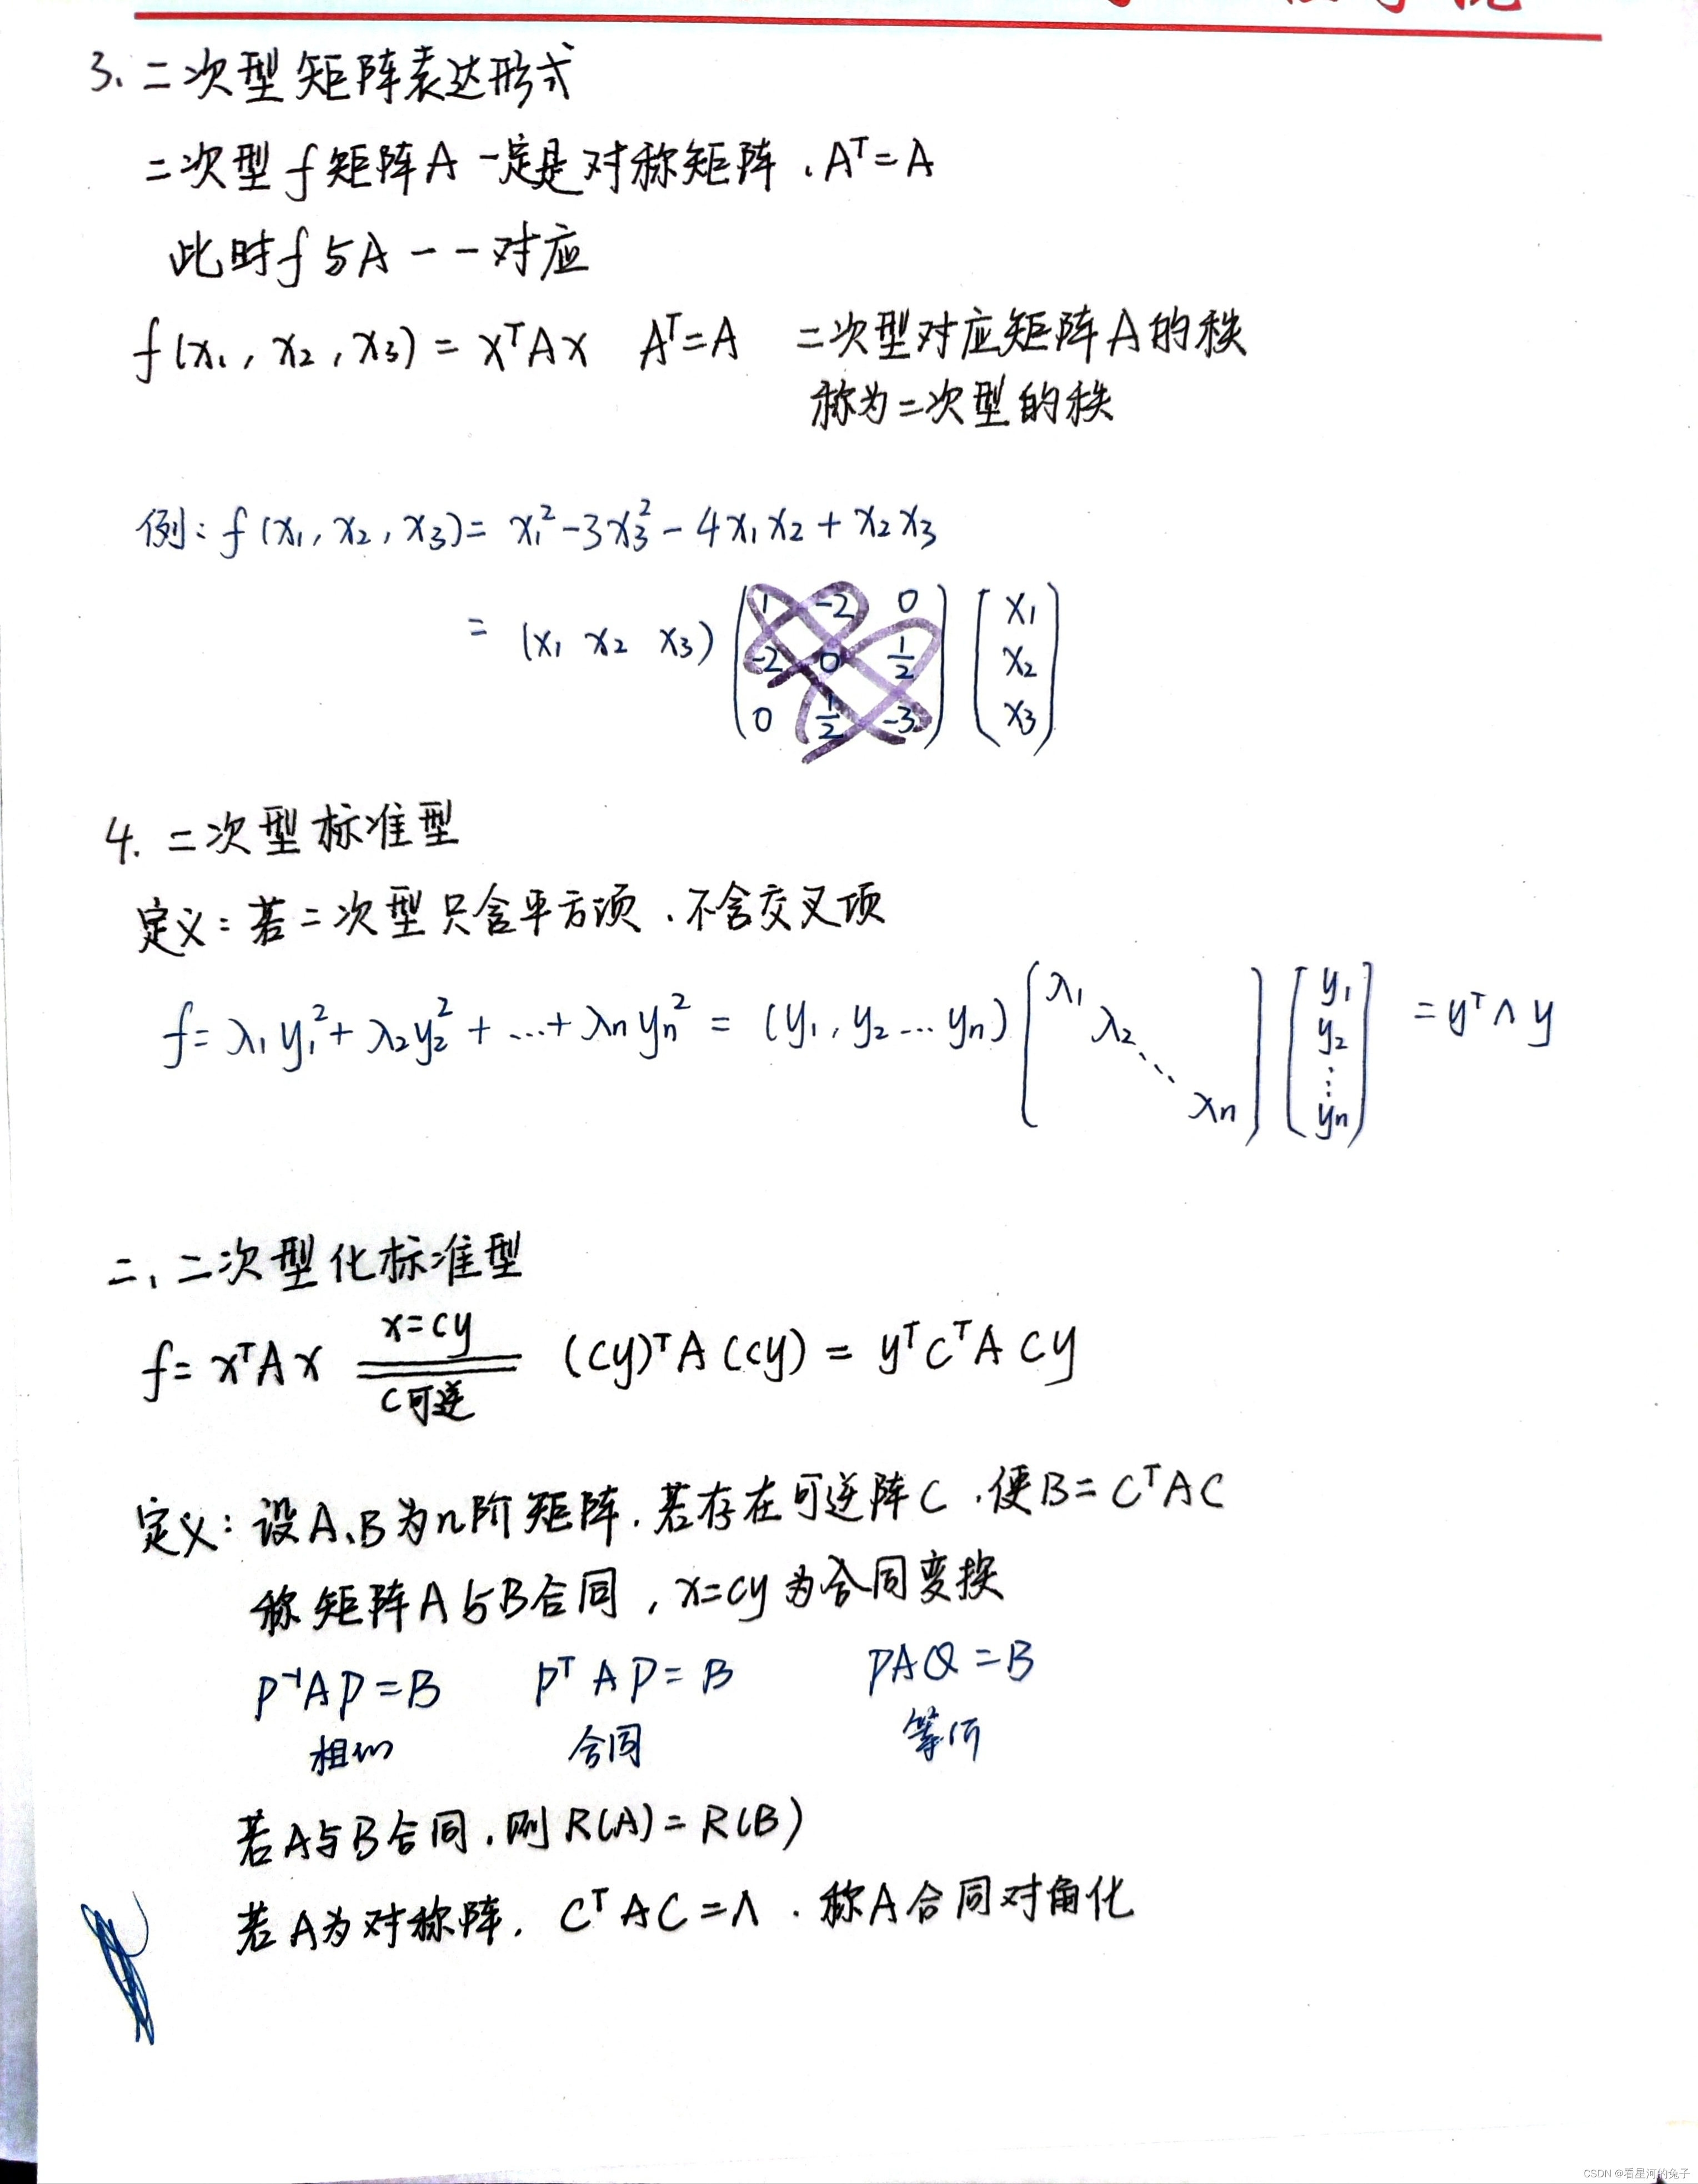 3、二次型矩阵表达形式
二次型f矩阵A一定是对称矩阵.Aᵀ=A
此时f与A一一对应
f(x₁, x₂, x₃) = xᵀAx Aᵀ=A 二次型对应矩阵A的秩
称为二次型的秩
例: f(x₁, x₂, x₃)= x₁²-3x₃²-4x₁x₂+x₂x₃
= (x₁ x₂ x₃) (1 -2 0
-2 0 1/2
0 1/2 -3) [x₁
x₂
x₃]
4. 二次型标准型
定义: 若二次型只含平方项.不含交叉项
f= λ₁y₁²+λ₂y₂²+...+λₙyₙ² = (y₁, y₂...yₙ) [λ₁ λ₂ ⋱ λₙ] [y₁ y₂ ⋮ yₙ] = yᵀΛy
二、二次型化标准型
x=cy
f= xᵀAx ═══ (cy)ᵀA(cy) = yᵀCᵀACy
C可逆
定义: 设A、B为n阶矩阵.若存在可逆阵C.使B=CᵀAC
称矩阵A与B合同, x=cy为合同变换
P⁻¹AP=B PᵀAP=B PAQ=B
相似 合同 等价
若A与B合同.则R(A)=R(B)
若A为对称阵, CᵀAC=Λ.称A合同对角化
CSDN @看星河的兔子